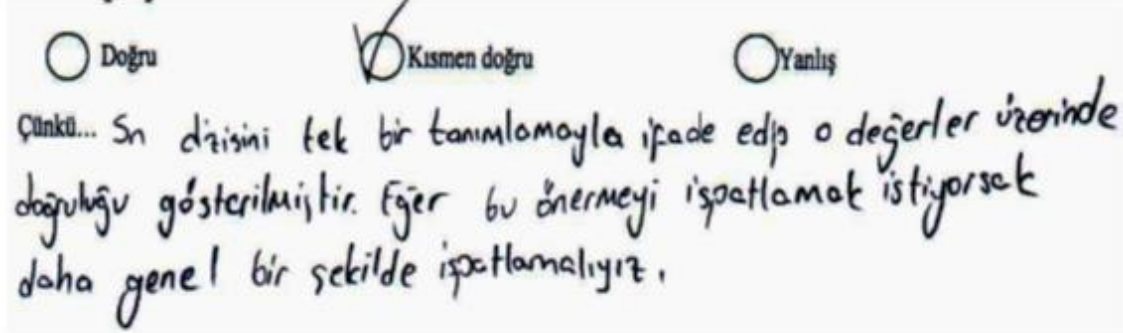 Doğru Kısmen doğru Yanlış
Çünkü... Sn dizisini tek bir tanımlamayla ifade edip o değerler üzerinde
doğruluğu gösterilmiştir. Eğer bu önermeyi ispatlamak istiyorsak
daha genel bir şekilde ispatlamalıyız.